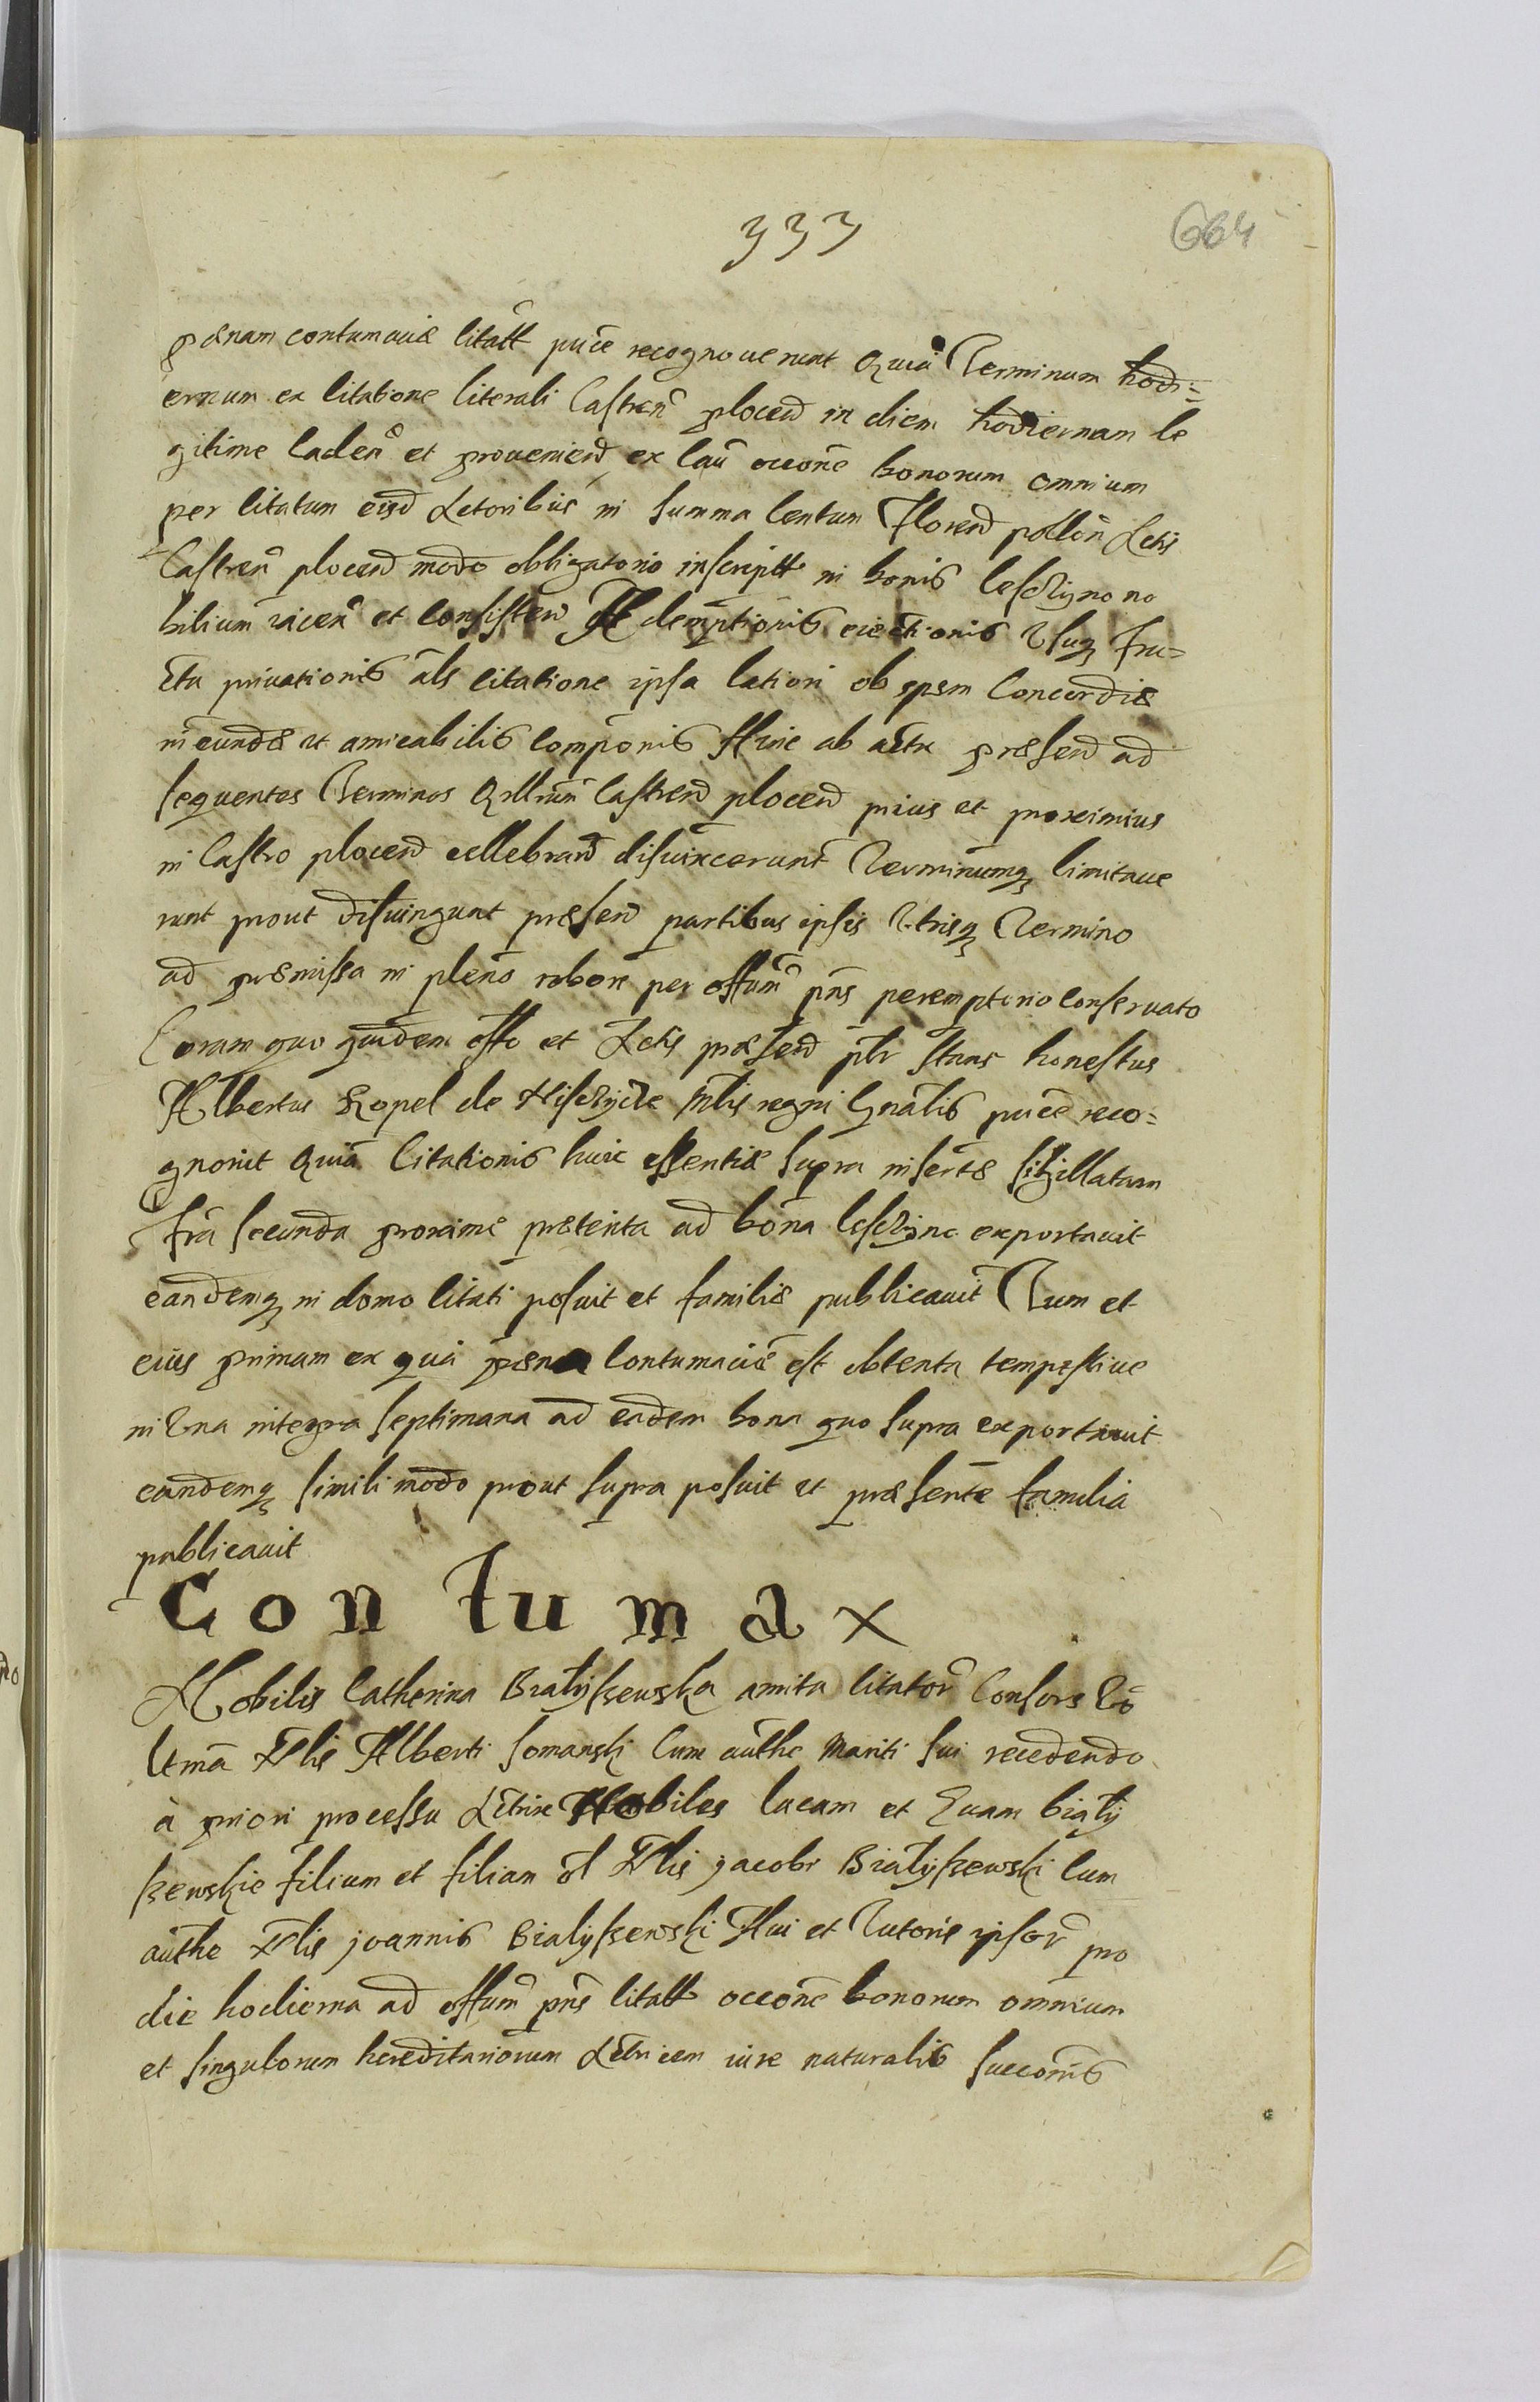 333
664
pænam contumaciæ citatt pu͞ce recognouerunt Quia Terminum hodi=
ernum ex citatione literali Castreñ plocen̄ in diem hodiernam le
gitime cadeñ et prouenien̄ ex cau͞ occone͞ bonorum omnium
per citatum eisd̄ Actoribus in summa centum Floren̄ pollon̄ Actis
Castren̄ plocen̄ modo obligatorio inscriptt in bonis
bilium iacen̄ et consisten̄ Ademptionis eiectionis Vsuq fru=
ctu priuationis als̄ citatione ipsa latiori ob spem Concordiæ
ineundæ et amicabilis componis͞ Hinc ab actu præsen̄ ad
sequentes Terminos Qrllrum͞ Castren̄ plocen̄ prius et proximius
in Castro plocen̄ cellebran̄ disuinxerunt Terminumq limitaue
runt prout disuingunt præsen̄ partibus ipsis Vtrisq Termino
ad præmissa in pleno robore per offum͞ pn̄s peremptorio conseruato
Coram quo quidem offo et Actis præsen̄ ptr͞ stans honestus
Albertus Kopel de Mlis͞ regni Gnalis͞ pu͞ce reco=
gnouit Quia Citationis huic essentiæ supra insertæ sigillatam
fra͞ secunda proxime præterita ad bona exportauit
eandemq in domo citati posuit et familiæ publicauit Tum et
eius primam ex qua pæna Contumaciæ est obtenta tempestiue
in Vna integra septimana ad eadem bona quo supra exportauit
eandemq simili modo prout supra posuit et præsente familia
publicauit
Contumax
Nobilis Catherina Białyszewska amita citator͞ Consors
ltma͞ Nlis͞ Alberti Somanski Cum authe͞ Mariti sui recedendo
à priori processu Actrix Nobiles Lucam et Euam biały
szewskie filium et filiam ol͞ Nlis͞ Jacobi Białyszewski Cum
authe͞ Nlis͞ joannis Białyszewski Aui et Tutoris ipsor͞ pro
die hodierna ad offum͞ pn̄s citatt occone͞ bonorum omnium
et singulorum hereditariorum Actricem iure naturalis succonis͞